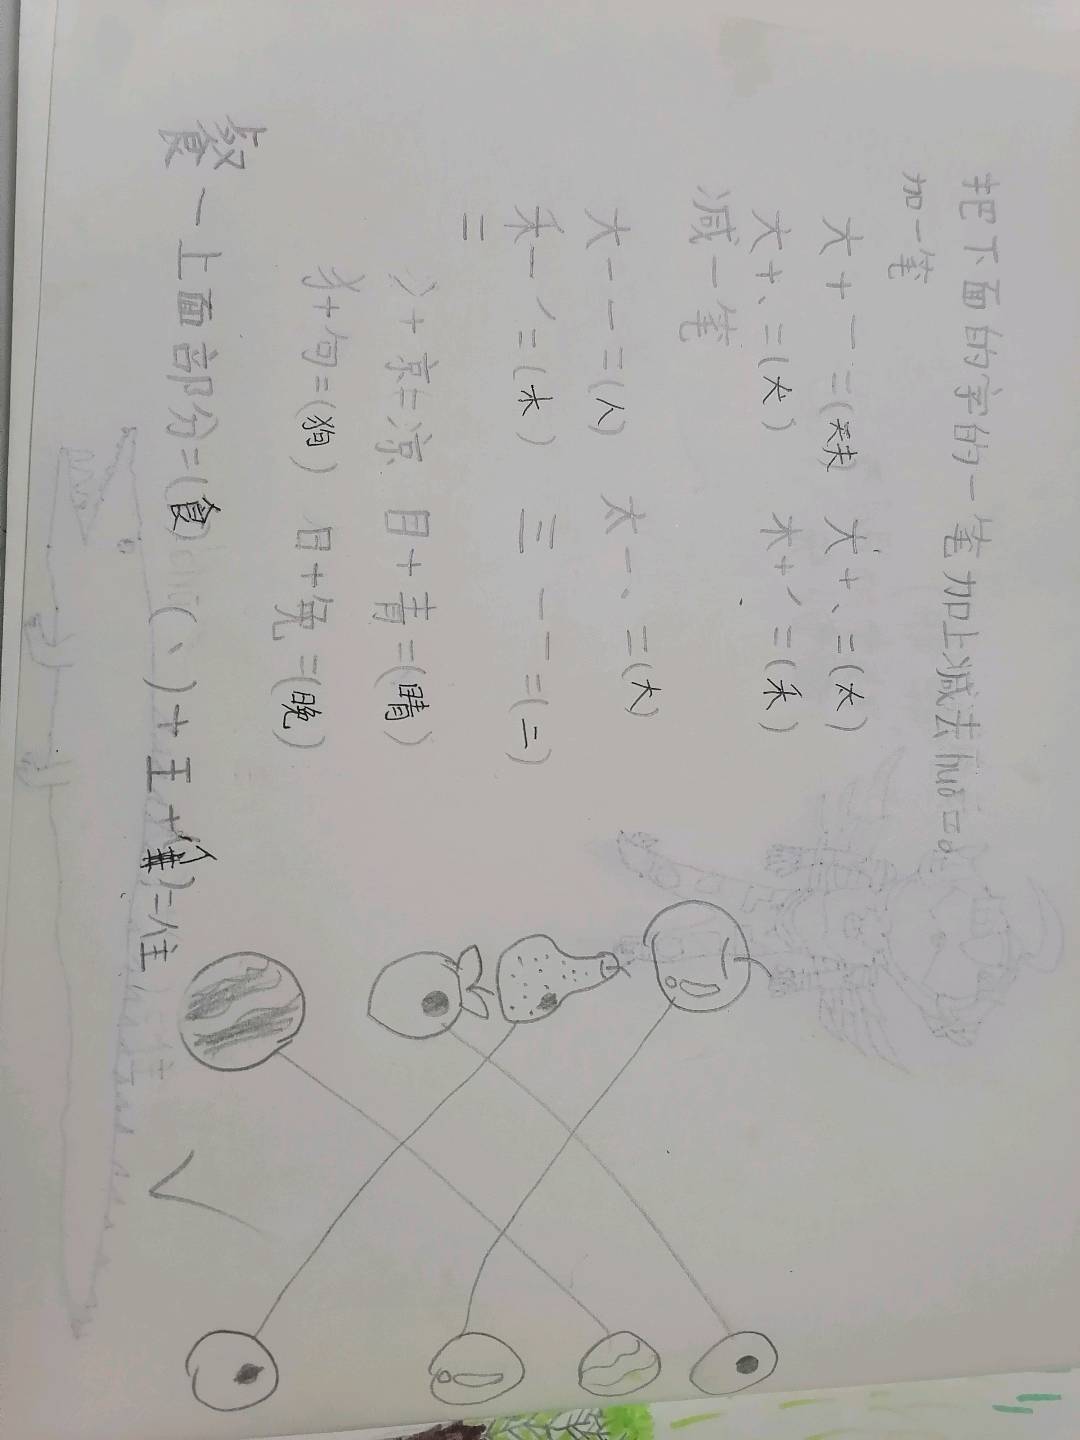 把下面的字的一笔加上减去huo二。
加一笔
大+一=(夫) 大+、=(火)
大+、=(火) 木+丿=(禾)
减一笔
大-一=(人) 太-、=(大)
禾-丿=(木) 三-一=(二)
二
冫+京=凉 目+青=(睛)
犭+句=(狗) 日+免=(晚)
餐-上面部分=(食) (丶)+王+(隹)=住